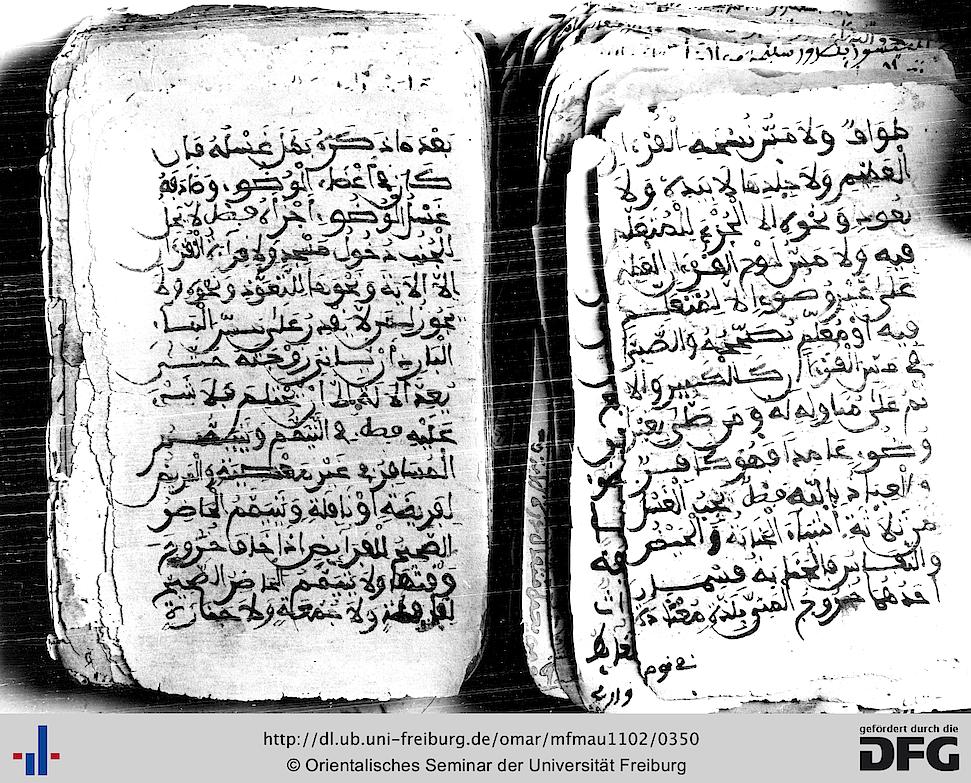 طواف ولا مس نسخة القرءان
العظيم ولا جلدها لا بيده ولا
بعود ونحوه الا الجزء للمتعلم
فيه ولا مس لوح القرءان العظيم
على غير وضوء الا لمتعلم
فيه أو معلم يصححه والصبي
في مس القرءان كالكبير والا
ثم على مناوله له ومن صلى بغير
وضوء عامدا فهو كافر
والعياذ بالله فصل يجب الغسل
من ثلاثة أشياء الجنابة والحيض
والنفاس فالجنابة قسمان
احدهما خروج المني بلذة معتادة
في نوم
بعد ما ذكره بطل غسله فإن
كان في أعضاء الوضوء وصادفه
غسل الوضوء أجزأه فصل لا يحل
للجنب دخول مسجد ولا قراءة القرءان
إلا الآية ونحوها للتعوذ ونحوه ولا
يجوز لمن لا يقدر على مس الماء
البارد أن يأتي زوجته حتى
يعد الآلة إلا أن يحتلم فلا شيء
عليه فصل في التيمم ويتيمم
المسافر في غير معصية والمريض
لفريضة أو نافلة ويتيمم الحاضر
الصحيح للفرايض إذا خاف خروج
وقتها ولا يتيمم الحاضر الصحيح
لنافلة ولا جمعة ولا جنازة
http://dl.ub.uni-freiburg.de/omar/mfmau1102/0350
© Orientalisches Seminar der Universität Freiburg
gefördert durch die
DFG